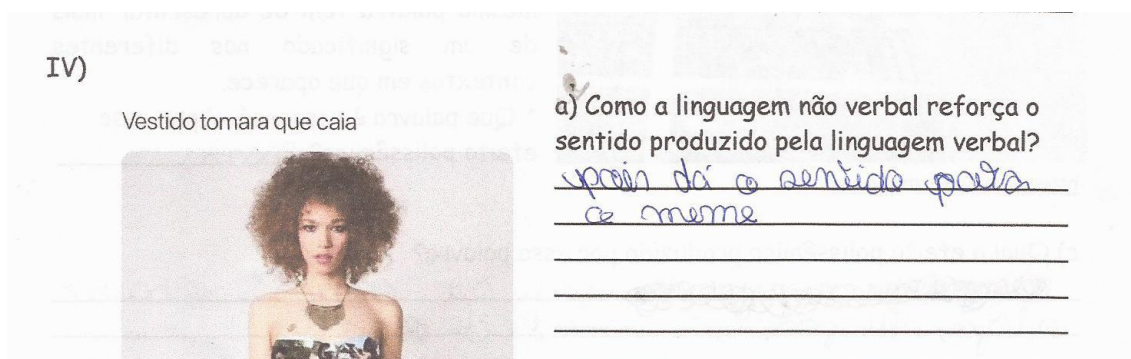 IV)
Vestido tomara que caia
a) Como a linguagem não verbal reforça o
sentido produzido pela linguagem verbal?
dá o sentido para
o meme